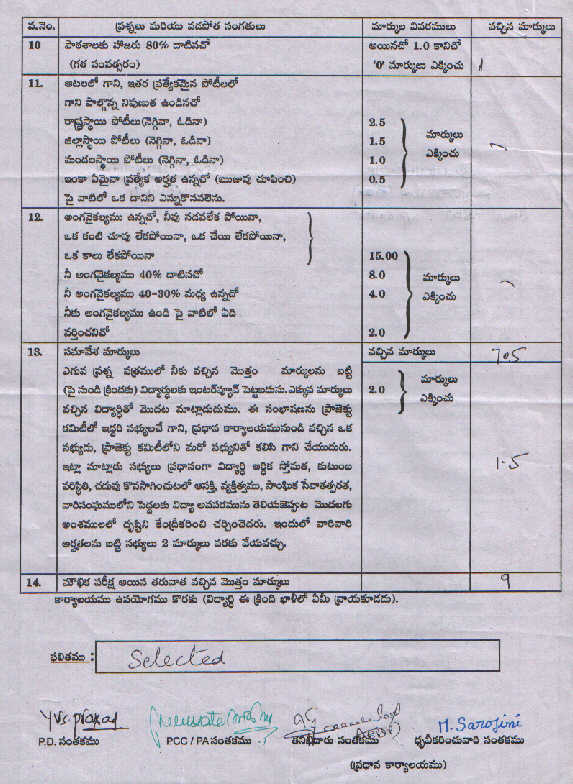 వ.నెం. ప్రశ్నలు మరియు వడపోత సంగతులు మార్కుల వివరములు వచ్చిన మార్కులు
10 పాఠశాలకు హాజరు 80% దాటినచో అయినచో 1.0 కానిచో
(గత సంవత్సరం) '0' మార్కులు ఎక్కించు 1
11. ఆటలలో గాని, ఇతర ప్రత్యేకమైన పోటీలలో
గాని పాల్గొన్న నిపుణుత ఉండినచో
రాష్ట్రస్థాయి పోటీలు(నెగ్గినా, ఓడినా) 2.5
జిల్లాస్థాయి పోటీలు (నెగ్గినా, ఓడినా) 1.5 మార్కులు
మండలస్థాయి పోటీలు (నెగ్గినా, ఓడినా) 1.0 ఎక్కించు
ఇంకా ఏమైనా ప్రత్యేక అర్హత ఉన్నచో (ఋజువు చూపించి) 0.5
పై వాటిలో ఒక దానిని ఎన్నుకొనవలెను.
12. అంగవైకల్యము ఉన్నచో, నీవు నడవలేక పోయినా,
ఒక కంటి చూపు లేకపోయినా, ఒక చేయి లేకపోయినా,
ఒక కాలు లేకపోయినా 15.00
నీ అంగవైకల్యము 40% దాటినచో 8.0 మార్కులు
నీ అంగవైకల్యము 40-30% మధ్య ఉన్నచో 4.0 ఎక్కించు
నీకు అంగవైకల్యము ఉండి పై వాటిలో ఏది
వర్తించనిచో 2.0
13. సమావేశ మార్కులు వచ్చిన మార్కులు 7.5
ఎగువ ప్రశ్న పత్రములో నీకు వచ్చిన మొత్తం మార్కులను బట్టి
(పై నుండి క్రిందకు) విద్యార్థులకు ఇంటర్వ్యూకై పెట్టబడును. ఎక్కువ మార్కులు 2.0 మార్కులు
వచ్చిన విద్యార్థితో మొదట మాట్లాడుదుము. ఈ సంభాషణను ప్రాజెక్టు ఎక్కించు
కమిటీలో ఇద్దరి సభ్యులచే గాని, ప్రధాన కార్యాలయమునుండి వచ్చిన ఒక
సభ్యుడు, ప్రాజెక్టు కమిటీలోని మరో సభ్యునితో కలిసి గాని చేయుదురు.
ఇట్లా మాట్లాడు సభ్యులు ప్రధానంగా విద్యార్థి ఆర్థిక స్తోమత, కుటుంబ
పరిస్థితి, చదువు కొనసాగించుటలో ఆసక్తి, వ్యక్తిత్వము, సాంఘిక సేవాతత్పరత, 1.5
వారిసంఘములోని పెద్దలకు విద్యా అవసరమును తెలియజెప్పుట మొదలగు
అంశములలో దృష్టిని కేంద్రీకరించి చర్చించెదరు. ఇందులో వారివారి
అర్హతలను బట్టి సభ్యులు 2 మార్కులు వరకు వేయవచ్చు.
14. మౌఖిక పరీక్ష అయిన తరువాత వచ్చిన మొత్తం మార్కులు 9
కార్యాలయము ఉపయోగము కొరకు (విద్యార్థి ఈ క్రింది ఖాళీలో ఏమీ వ్రాయకూడదు).
ఫలితము : Selected
M. Sarojini
P.D. సంతకము PCC / PA సంతకము తనిఖీదారు సంతకము ధృవీకరించువారి సంతకము
(ప్రధాన కార్యాలయము)